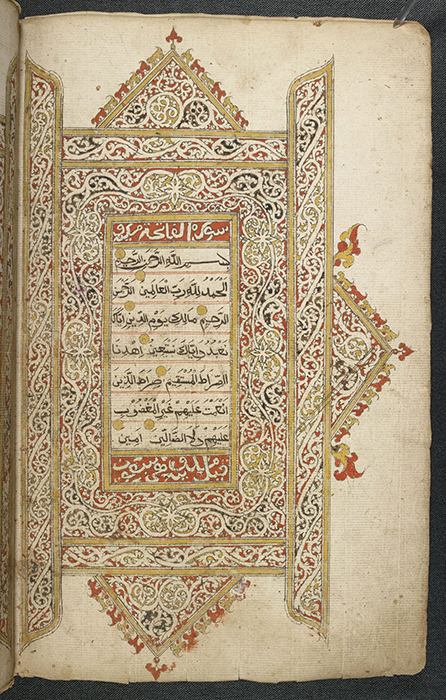 سورة الفاتحة
بسم الله الرحمن الرحيم
الحمد لله رب العالمين الرحمن
الرحيم مالك يوم الدين اياك
نعبد واياك نستعين اهدنا
الصراط المستقيم صراط الذين
انعمت عليهم غير المغضوب
عليهم ولا الضالين امين